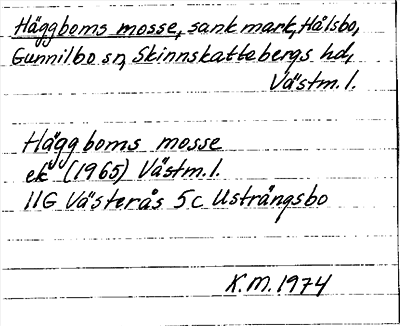 Häggboms mosse, sank mark, Hålsbo,
Gunnilbo sn, Skinnskattebergs hd,
Västm. l.
Häggboms mosse
ek (1965) Västm. l.
11G Västerås 5c Ustrångsbo
K.M. 1974